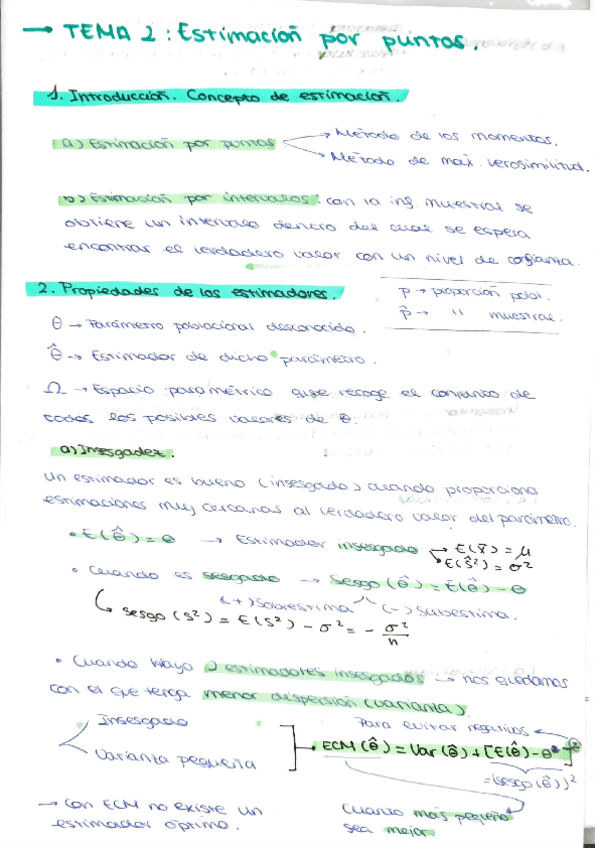 → TEMA 2: Estimación por puntos.
1. Introducción. Concepto de estimación.
a) Estimación por puntos → Método de los momentos.
→ Método de max. verosimilitud.
b) Estimación por intervalos: con la inf. muestral se
obtiene un intervalo dentro del cual se espera
encontrar el verdadero valor con un nivel de confianza.
2. Propiedades de los estimadores.
p → proporción pobl.
p̂ → " muestral.
θ → Parámetro poblacional desconocido.
θ̂ → Estimador de dicho parámetro.
Ω → Espacio paramétrico que recoge el conjunto de
todos los posibles valores de θ.
a) Insesgadez.
Un estimador es bueno (insesgado) cuando proporciona
estimaciones muy cercanas al verdadero valor del parámetro.
• E(θ̂) = θ → Estimador insesgado → E(x̄) = μ
→ E(ŝ²) = σ²
• Cuando es sesgado → Sesgo(θ̂) = E(θ̂) - θ
(+) Sobrestima (-) Subestima.
sesgo(s²) = E(s²) - σ² = - σ²/n
• Cuando haya 2 estimadores insesgados → nos quedamos
con el que tenga menor dispersión (varianza).
Insesgado
Varianza pequeña
Para evitar negativos
ECM(θ̂) = Var(θ̂) + [E(θ̂) - θ]²
= (sesgo(θ̂))²
→ Con ECM no existe un
estimador óptimo.
Cuanto más pequeño
sea mejor.